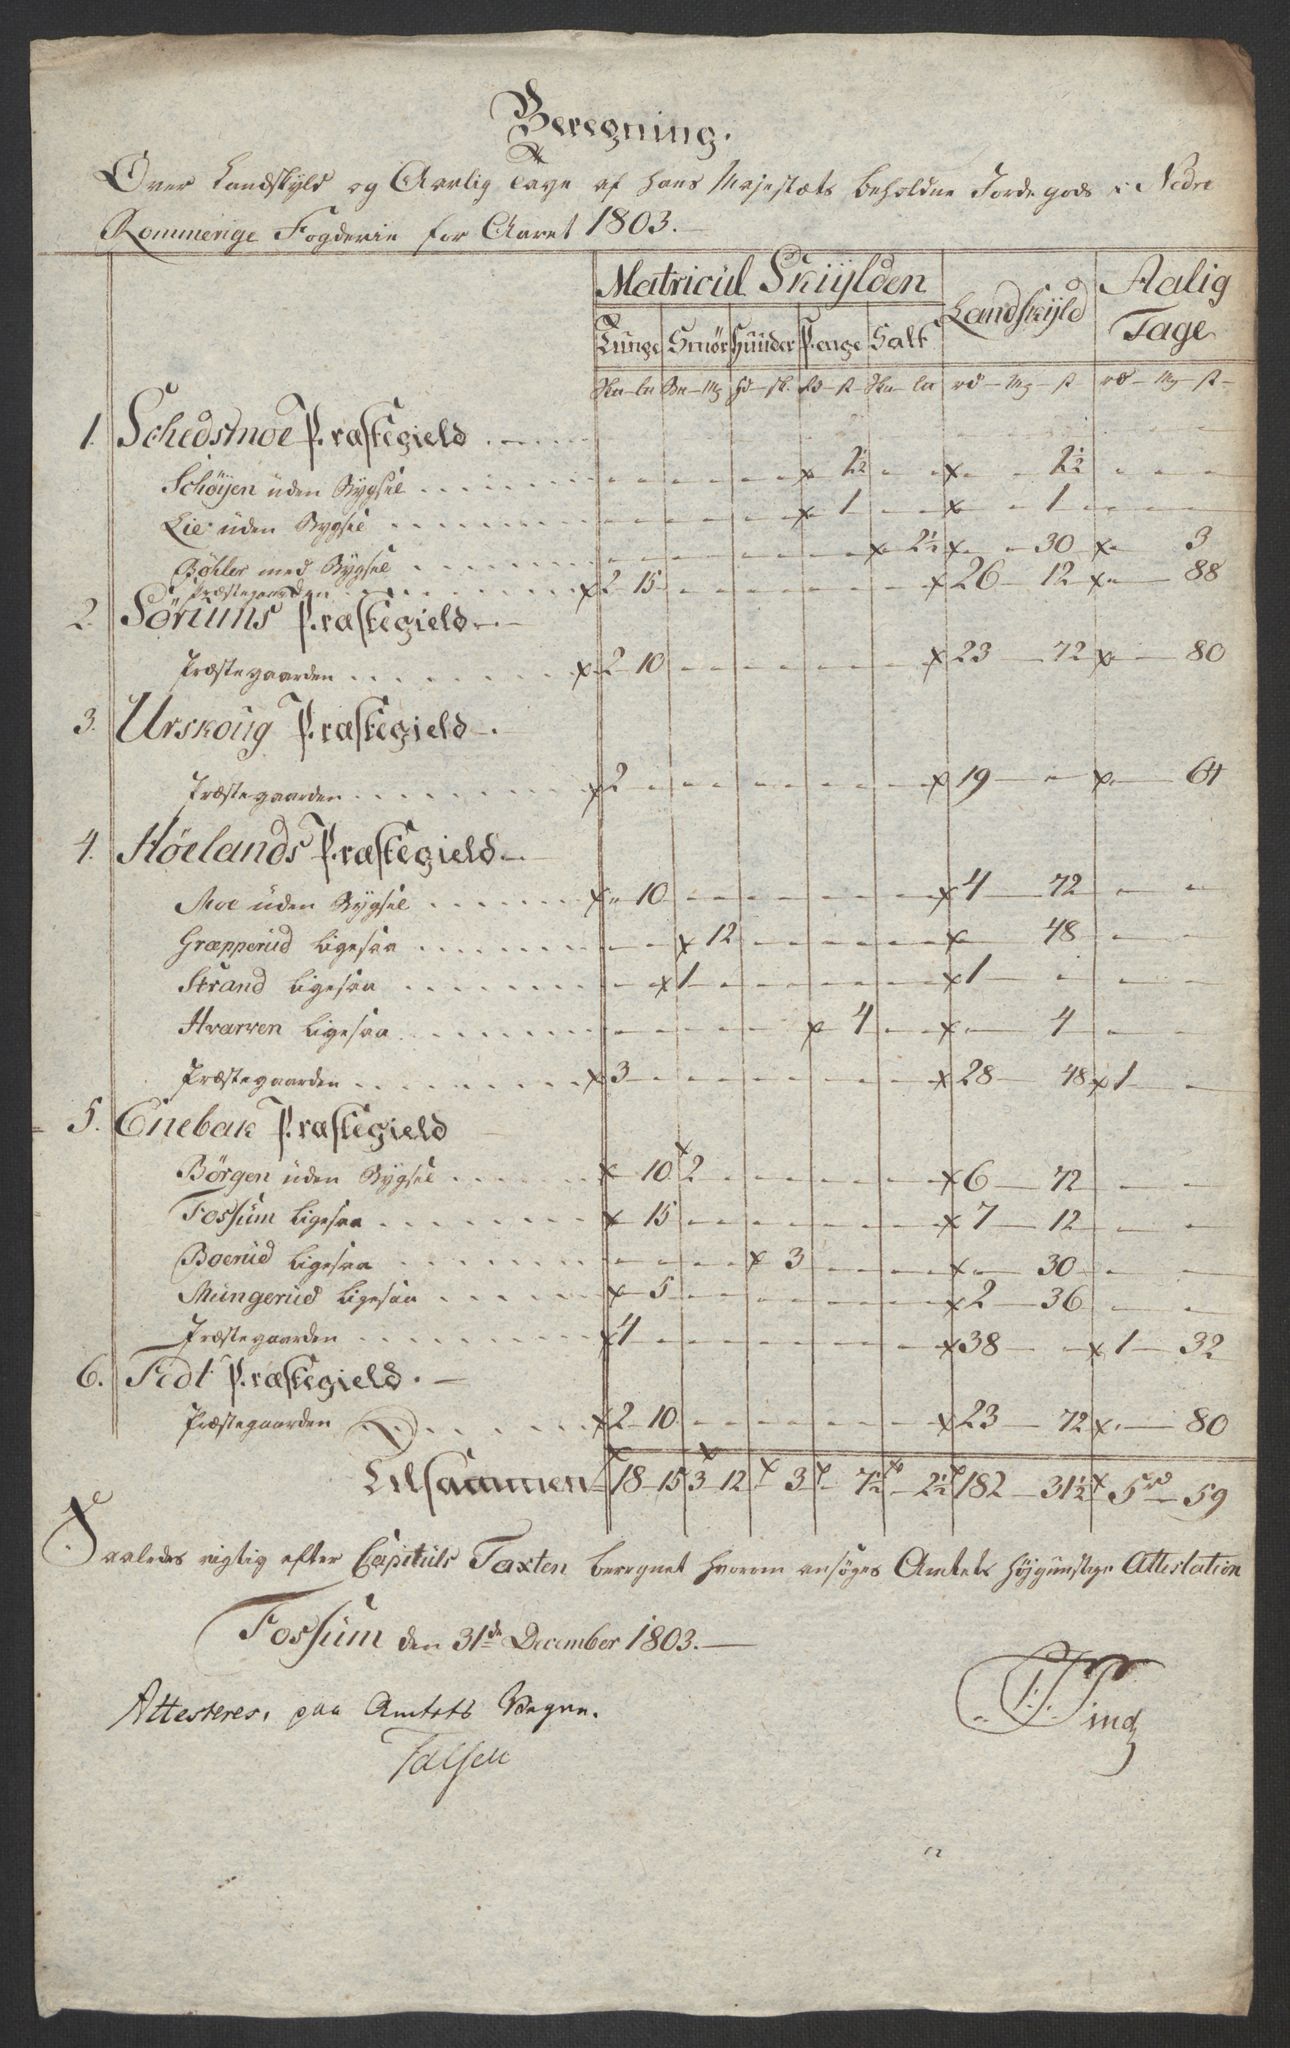 Beregning.
Over Landskyld og Aarlig Tage af Hans Majestæts beholdne Jordegods i Nedre
Rommerige Fogderie for Aaret 1803.
Matricul Skiylden Landskyld Aalig Tage
Tunge Smör Huuder Penge Salt
1. Schedsmoe Præstegield
Schøyen uden Bygsel 2½ 2½
Lie uden Bygsel 1 1
Bøhler med Bygsel 2½ 30 3
Præstegaarden 2 15 26 12 88
2. Sørums Præstegield
Præstegaarden 2 10 23 72 80
3. Urskoug Præstegield
Præstegaarden 2 19 64
4. Høelands Præstegield
Moe uden Bygsel 10 4 72
Græpperud ligesaa 12 48
Strand ligesaa 1 1
Hvarven ligesaa 4 4
Præstegaarden 3 28 48 1
5. Enebak Præstegield
Börgen uden Bygsel 10 2 6 72
Fossum ligesaa 15 7 12
Boerud ligesaa 3 30
Mungerud ligesaa 5 2 36
Præstegaarden 4 38 1 32
6. Fedt Præstegield
Præstegaarden 2 10 23 72 80
Tilsammen 18 15 3 12 3 7½ 2½ 182 31½ 5 59
Saaledes rigtig efter Capituls Taxten beregnet hvorom ansøges Amtets høygunstige Attestation
Fossum den 31de December 1803.
Attesteres, paa Amtets Vegne.
Falsen